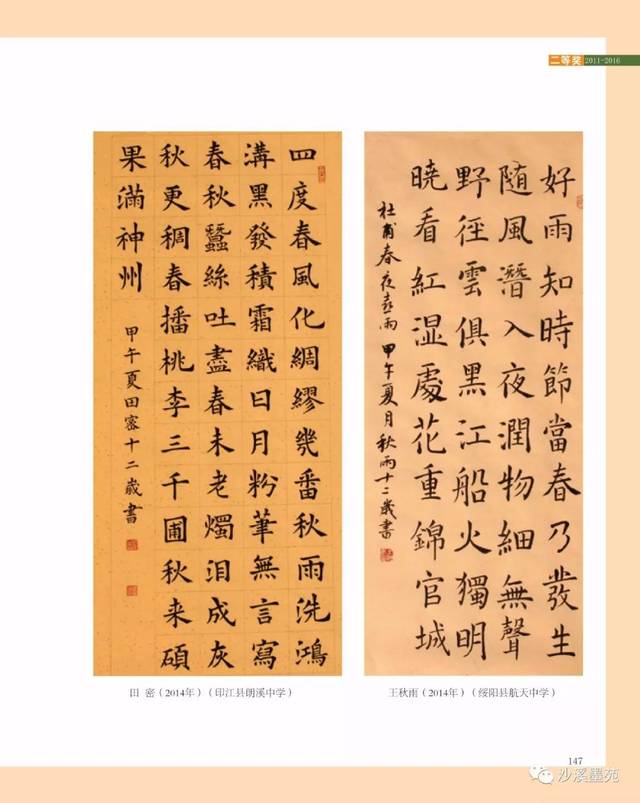 二等奖 2011-2016
四度春風化綢繆幾番秋雨洗鴻
溝黑發積霜織日月粉筆無言寫
春秋蠶絲吐盡春未老燭泪成灰
秋更稠春播桃李三千圃秋来碩
果滿神州
甲午夏田密十二歲書
好雨知時節當春乃發生
随風潛入夜潤物細無聲
野徑雲俱黑江船火獨明
曉看紅湿處花重錦官城
杜甫春夜喜雨 甲午夏月秋雨十二歲書
田 密（2014年）（印江县朗溪中学）
王秋雨（2014年）（绥阳县航天中学）
147
沙溪墨苑